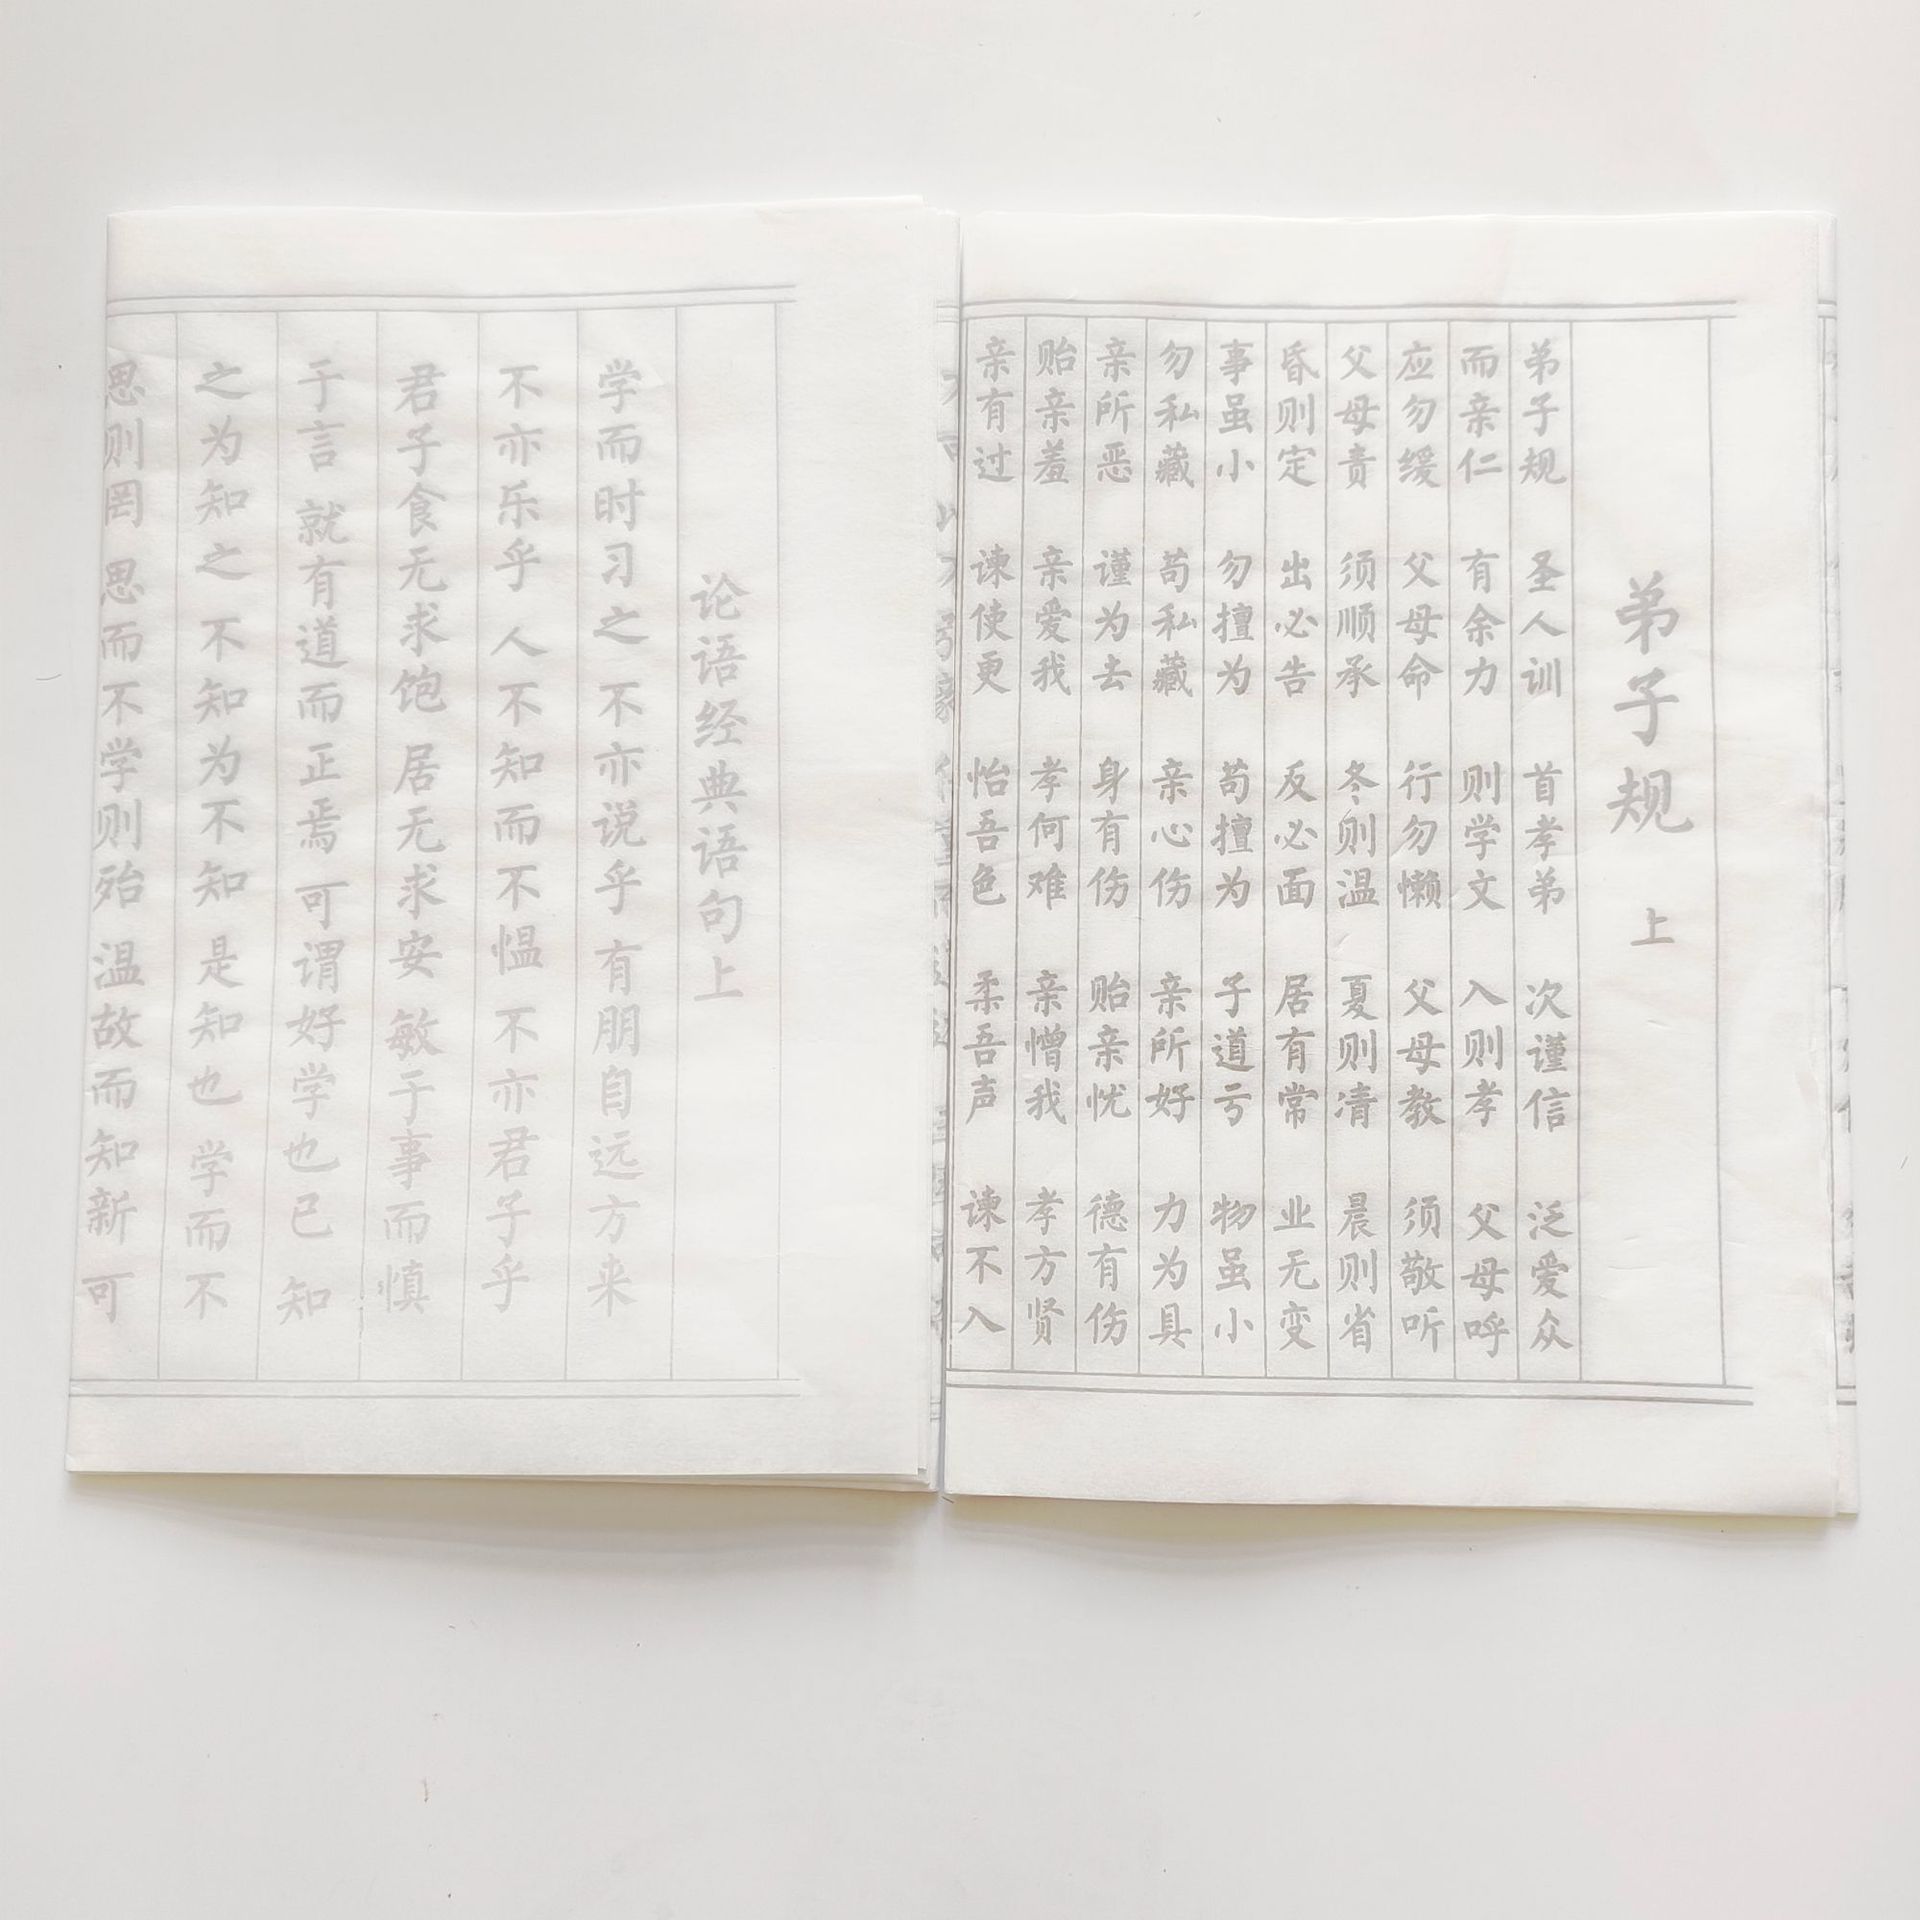 弟子规 上
弟子规 圣人训 首孝弟 次谨信 泛爱众
而亲仁 有余力 则学文 入则孝 父母呼
应勿缓 父母命 行勿懒 父母教 须敬听
父母责 须顺承 冬则温 夏则凊 晨则省
昏则定 出必告 反必面 居有常 业无变
事虽小 勿擅为 苟擅为 子道亏 物虽小
勿私藏 苟私藏 亲心伤 亲所好 力为具
亲所恶 谨为去 身有伤 贻亲忧 德有伤
贻亲羞 亲爱我 孝何难 亲憎我 孝方贤
亲有过 谏使更 怡吾色 柔吾声 谏不入
论语经典语句上
学而时习之 不亦说乎 有朋自远方来
不亦乐乎 人不知而不愠 不亦君子乎
君子食无求饱 居无求安 敏于事而慎
于言 就有道而正焉 可谓好学也已 知
之为知之 不知为不知 是知也 学而不
思则罔 思而不学则殆 温故而知新 可